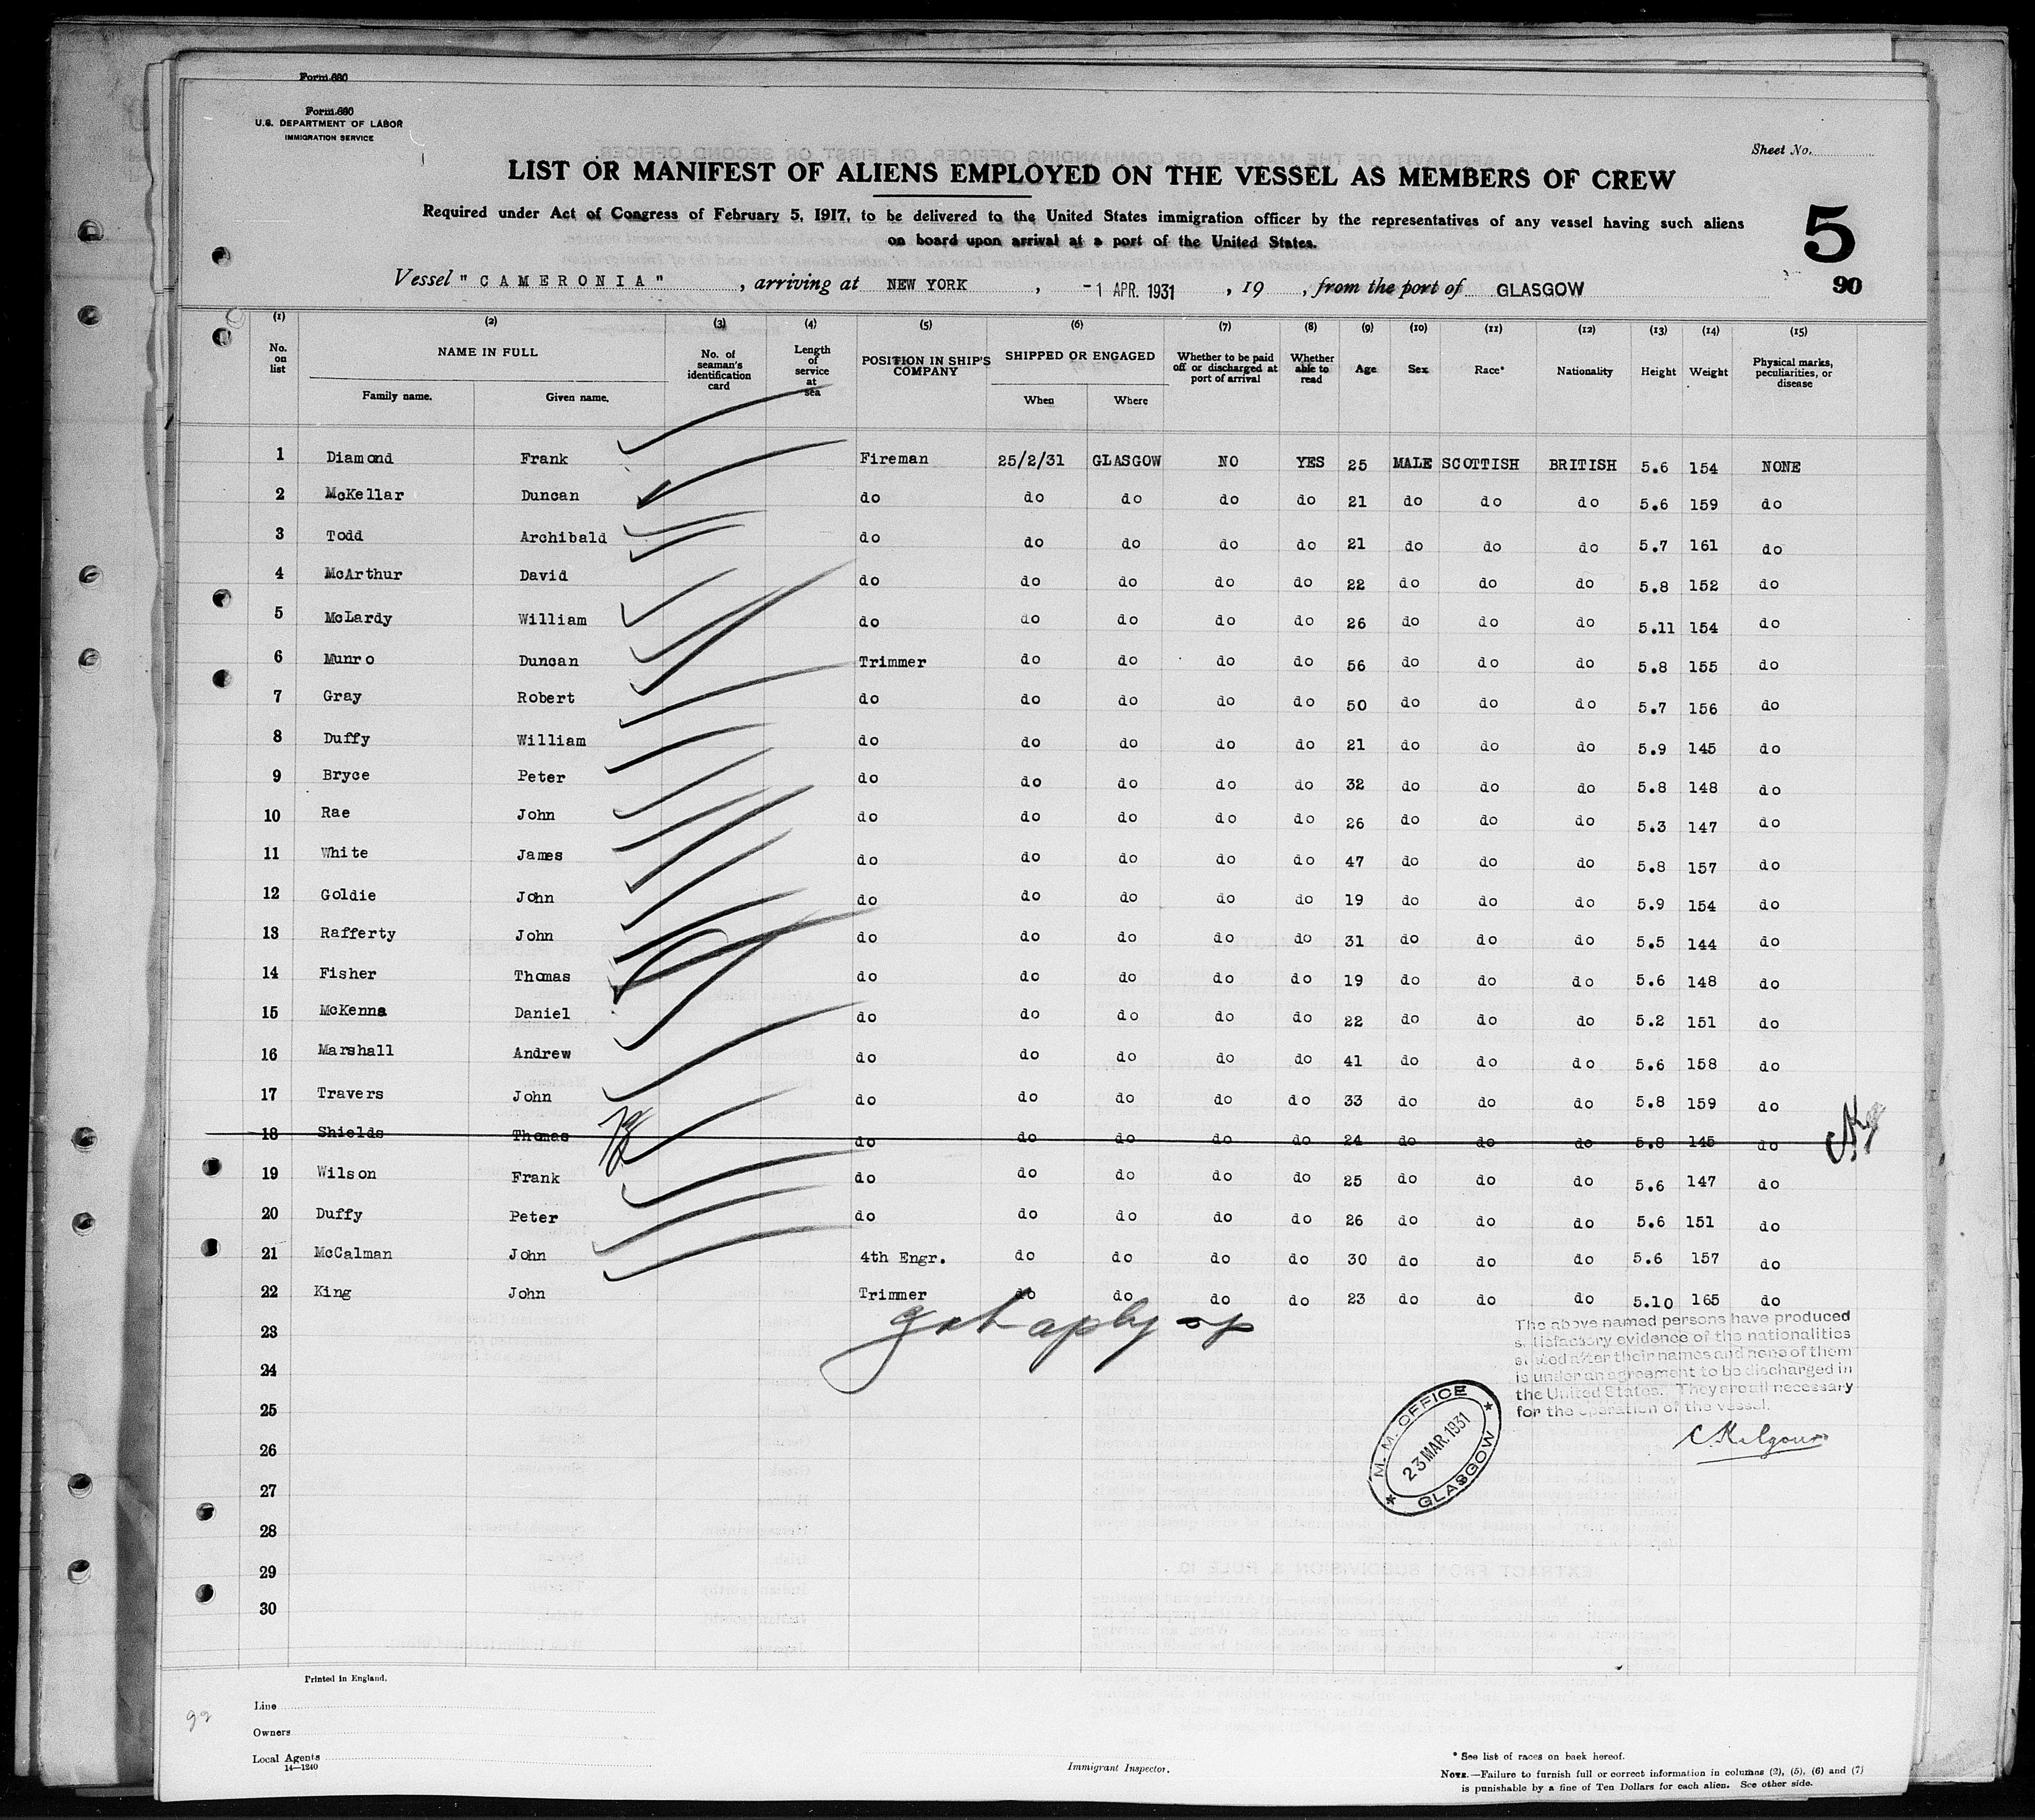 Form 680
Form 690
U.S. DEPARTMENT OF LABOR
IMMIGRATION SERVICE
Sheet No.
LIST OR MANIFEST OF ALIENS EMPLOYED ON THE VESSEL AS MEMBERS OF CREW
Required under Act of Congress of February 5, 1917, to be delivered to the United States immigration officer by the representatives of any vessel having such aliens
on board upon arrival at a port of the United States.
5
90
Vessel "CAMERONIA", arriving at NEW YORK, -1 APR. 1931, 19 , from the port of GLASGOW
(1) (2) (3) (4) (5) (6) (7) (8) (9) (10) (11) (12) (13) (14) (15)
No. on list NAME IN FULL Family name. Given name. No. of seaman's identification card Length of service at sea POSITION IN SHIP'S COMPANY SHIPPED OR ENGAGED When Where Whether to be paid off or discharged at port of arrival Whether able to read Age Sex Race* Nationality Height Weight Physical marks, peculiarities, or disease
1 Diamond Frank Fireman 25/2/31 GLASGOW NO YES 25 MALE SCOTTISH BRITISH 5.6 154 NONE
2 McKellar Duncan do do do do do 21 do do do 5.6 159 do
3 Todd Archibald do do do do do 21 do do do 5.7 161 do
4 McArthur David do do do do do 22 do do do 5.8 152 do
5 McLardy William do do do do do 26 do do do 5.11 154 do
6 Munro Duncan Trimmer do do do do 56 do do do 5.8 155 do
7 Gray Robert do do do do do 50 do do do 5.7 156 do
8 Duffy William do do do do do 21 do do do 5.9 145 do
9 Bryce Peter do do do do do 32 do do do 5.8 148 do
10 Rae John do do do do do 26 do do do 5.3 147 do
11 White James do do do do do 47 do do do 5.8 157 do
12 Goldie John do do do do do 19 do do do 5.9 154 do
13 Rafferty John do do do do do 31 do do do 5.5 144 do
14 Fisher Thomas do do do do do 19 do do do 5.6 148 do
15 McKenna Daniel do do do do do 22 do do do 5.2 151 do
16 Marshall Andrew do do do do do 41 do do do 5.6 158 do
17 Travers John do do do do do 33 do do do 5.8 159 do
18 Shields Thomas do do do do do 24 do do do 5.8 145 do
19 Wilson Frank do do do do do 25 do do do 5.6 147 do
20 Duffy Peter do do do do do 26 do do do 5.6 151 do
21 McCalman John 4th Engr. do do do do 30 do do do 5.6 157 do
22 King John Trimmer do do do do 23 do do do 5.10 165 do
23
24
25
26
27
28
29
30
The above named persons have produced
satisfactory evidence of the nationalities
stated after their names and none of them
is under an agreement to be discharged in
the United States. They are all necessary
for the operation of the vessel.
C. Kilgour
M. M. OFFICE
23 MAR. 1931
GLASGOW
Printed in England.
Line
Owners
Local Agents
14—1240
Immigrant Inspector.
* See list of races on back hereof.
NOTE.—Failure to furnish full or correct information in columns (2), (5), (6) and (7)
is punishable by a fine of Ten Dollars for each alien. See other side.